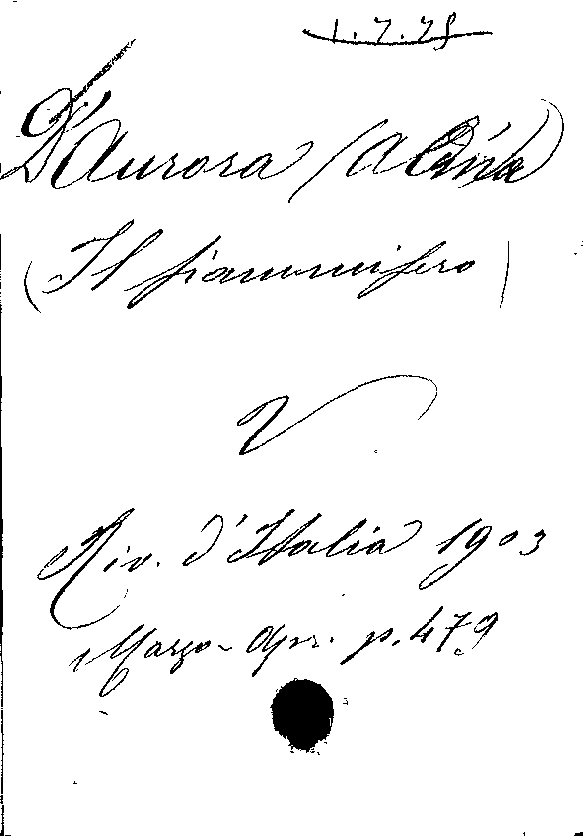 1.7.25
D'Aurora (Alcina)
(Il fiammifero)
V
Riv. d'Italia 1903
Marzo-Apr. p. 479